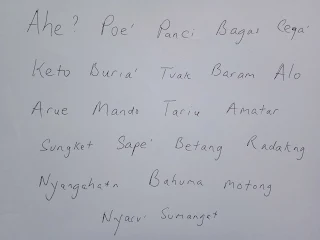 Ahe? Poe' Panci Bagas Cega'
Keto Buria' Tuak Baram Alo
Arue Mando Tariu Amatar
Sungket Sape' Betang Radakng
Nyangahatn Bahuma motong
Nyaru Sumanget